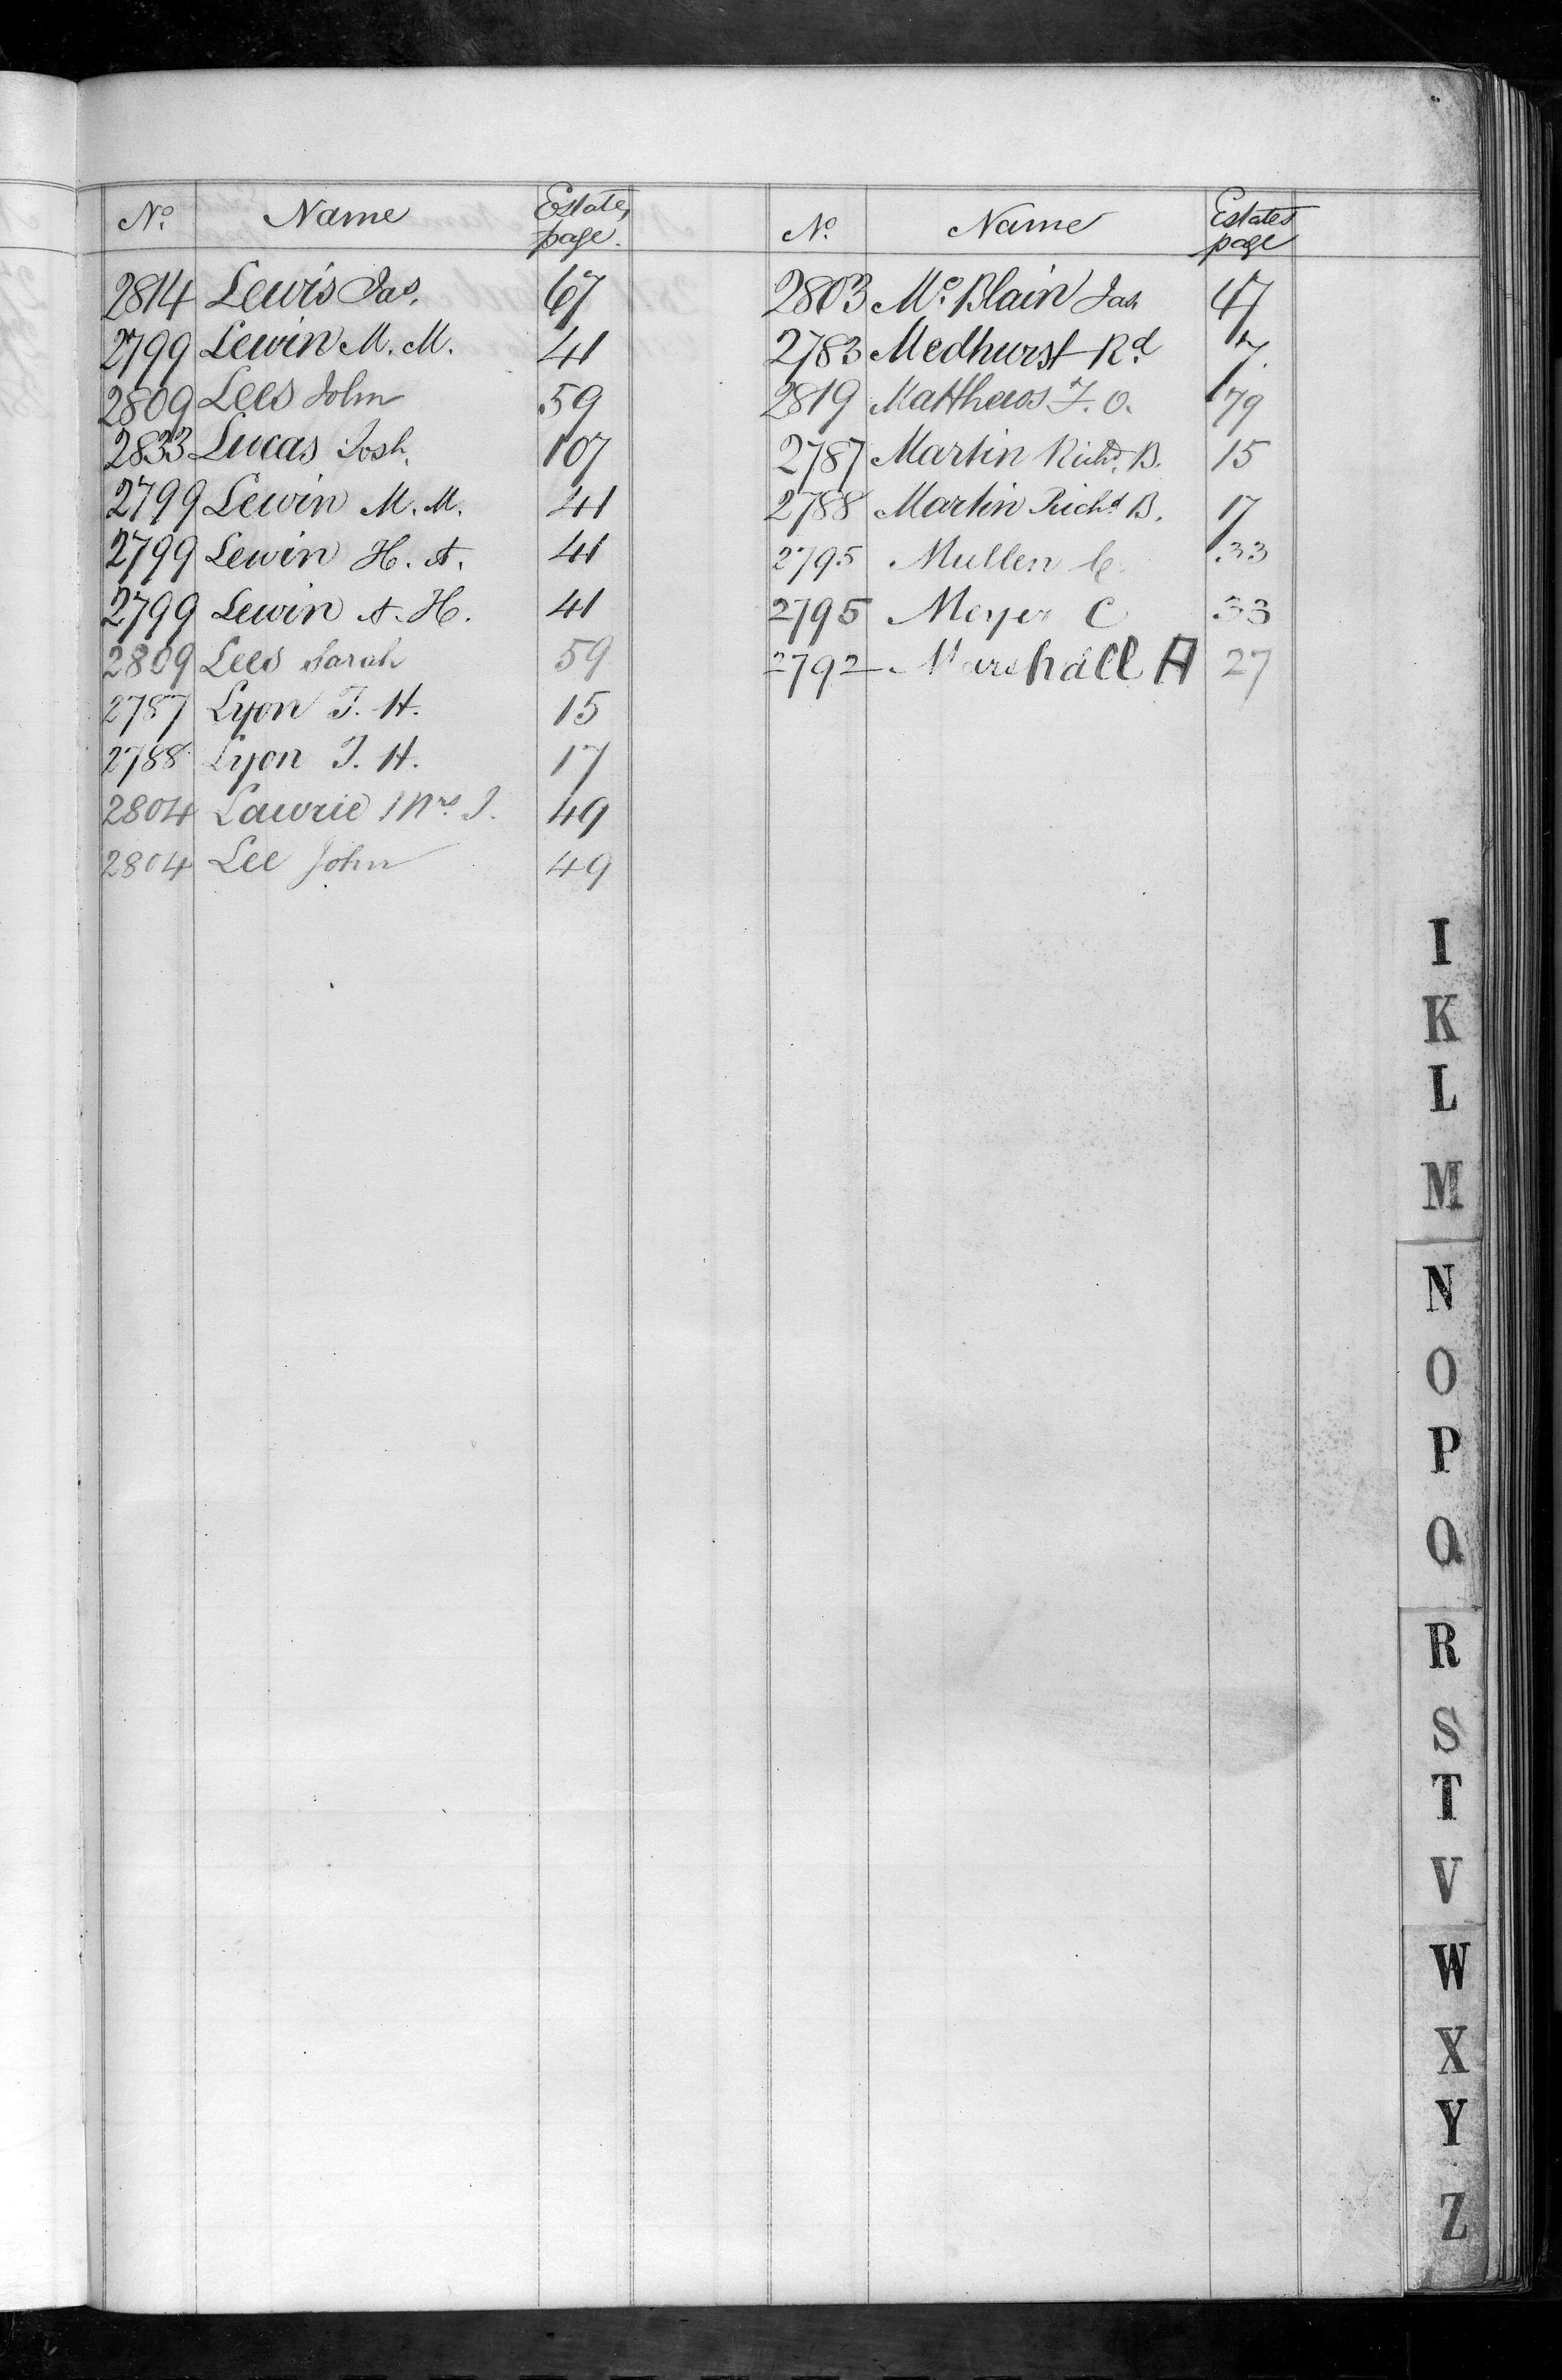 No. Name Estates page.
2814 Lewis Jas. 67
2799 Lewin M. M. 41
2809 Lees John 59
2833 Lucas Josh. 107
2799 Lewin M. M. 41
2799 Lewin H. A. 41
2799 Lewin A. H. 41
2809 Lees Sarah 59
2787 Lyon T. H. 15
2788 Lyon T. H. 17
2804 Lawrie Mrs J. 49
2804 Lee John 49
No. Name Estates page
2803 Mc Blain Jas 47
2783 Medhurst Rd 7
2819 Matthews F. O. 79
2787 Martin Richd. B. 15
2788 Martin Richd B. 17
2795 Mullen C. 33
2795 Meyer C 33
2792 Marshall A 27
I
K
L
M
N
O
P
Q
R
S
T
V
W
X
Y
Z